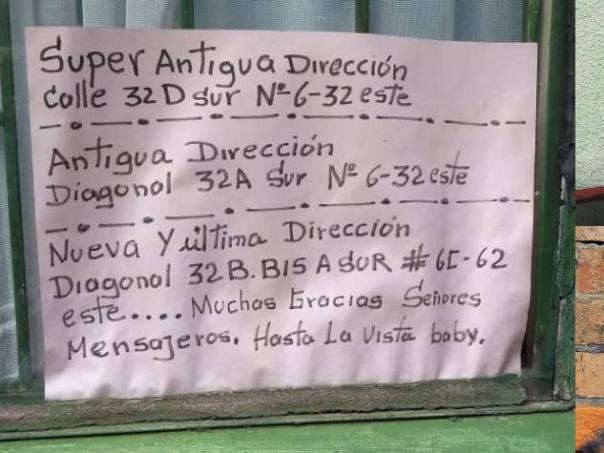 Super Antigua Dirección
Calle 32 D sur Nº 6-32 este
Antigua Dirección
Diagonal 32A Sur Nº 6-32 este
Nueva Y última Dirección
Diagonal 32 B. BIS A SUR # 6I-62
este.... Muchas Gracias Señores
Mensajeros. Hasta La Vista baby.